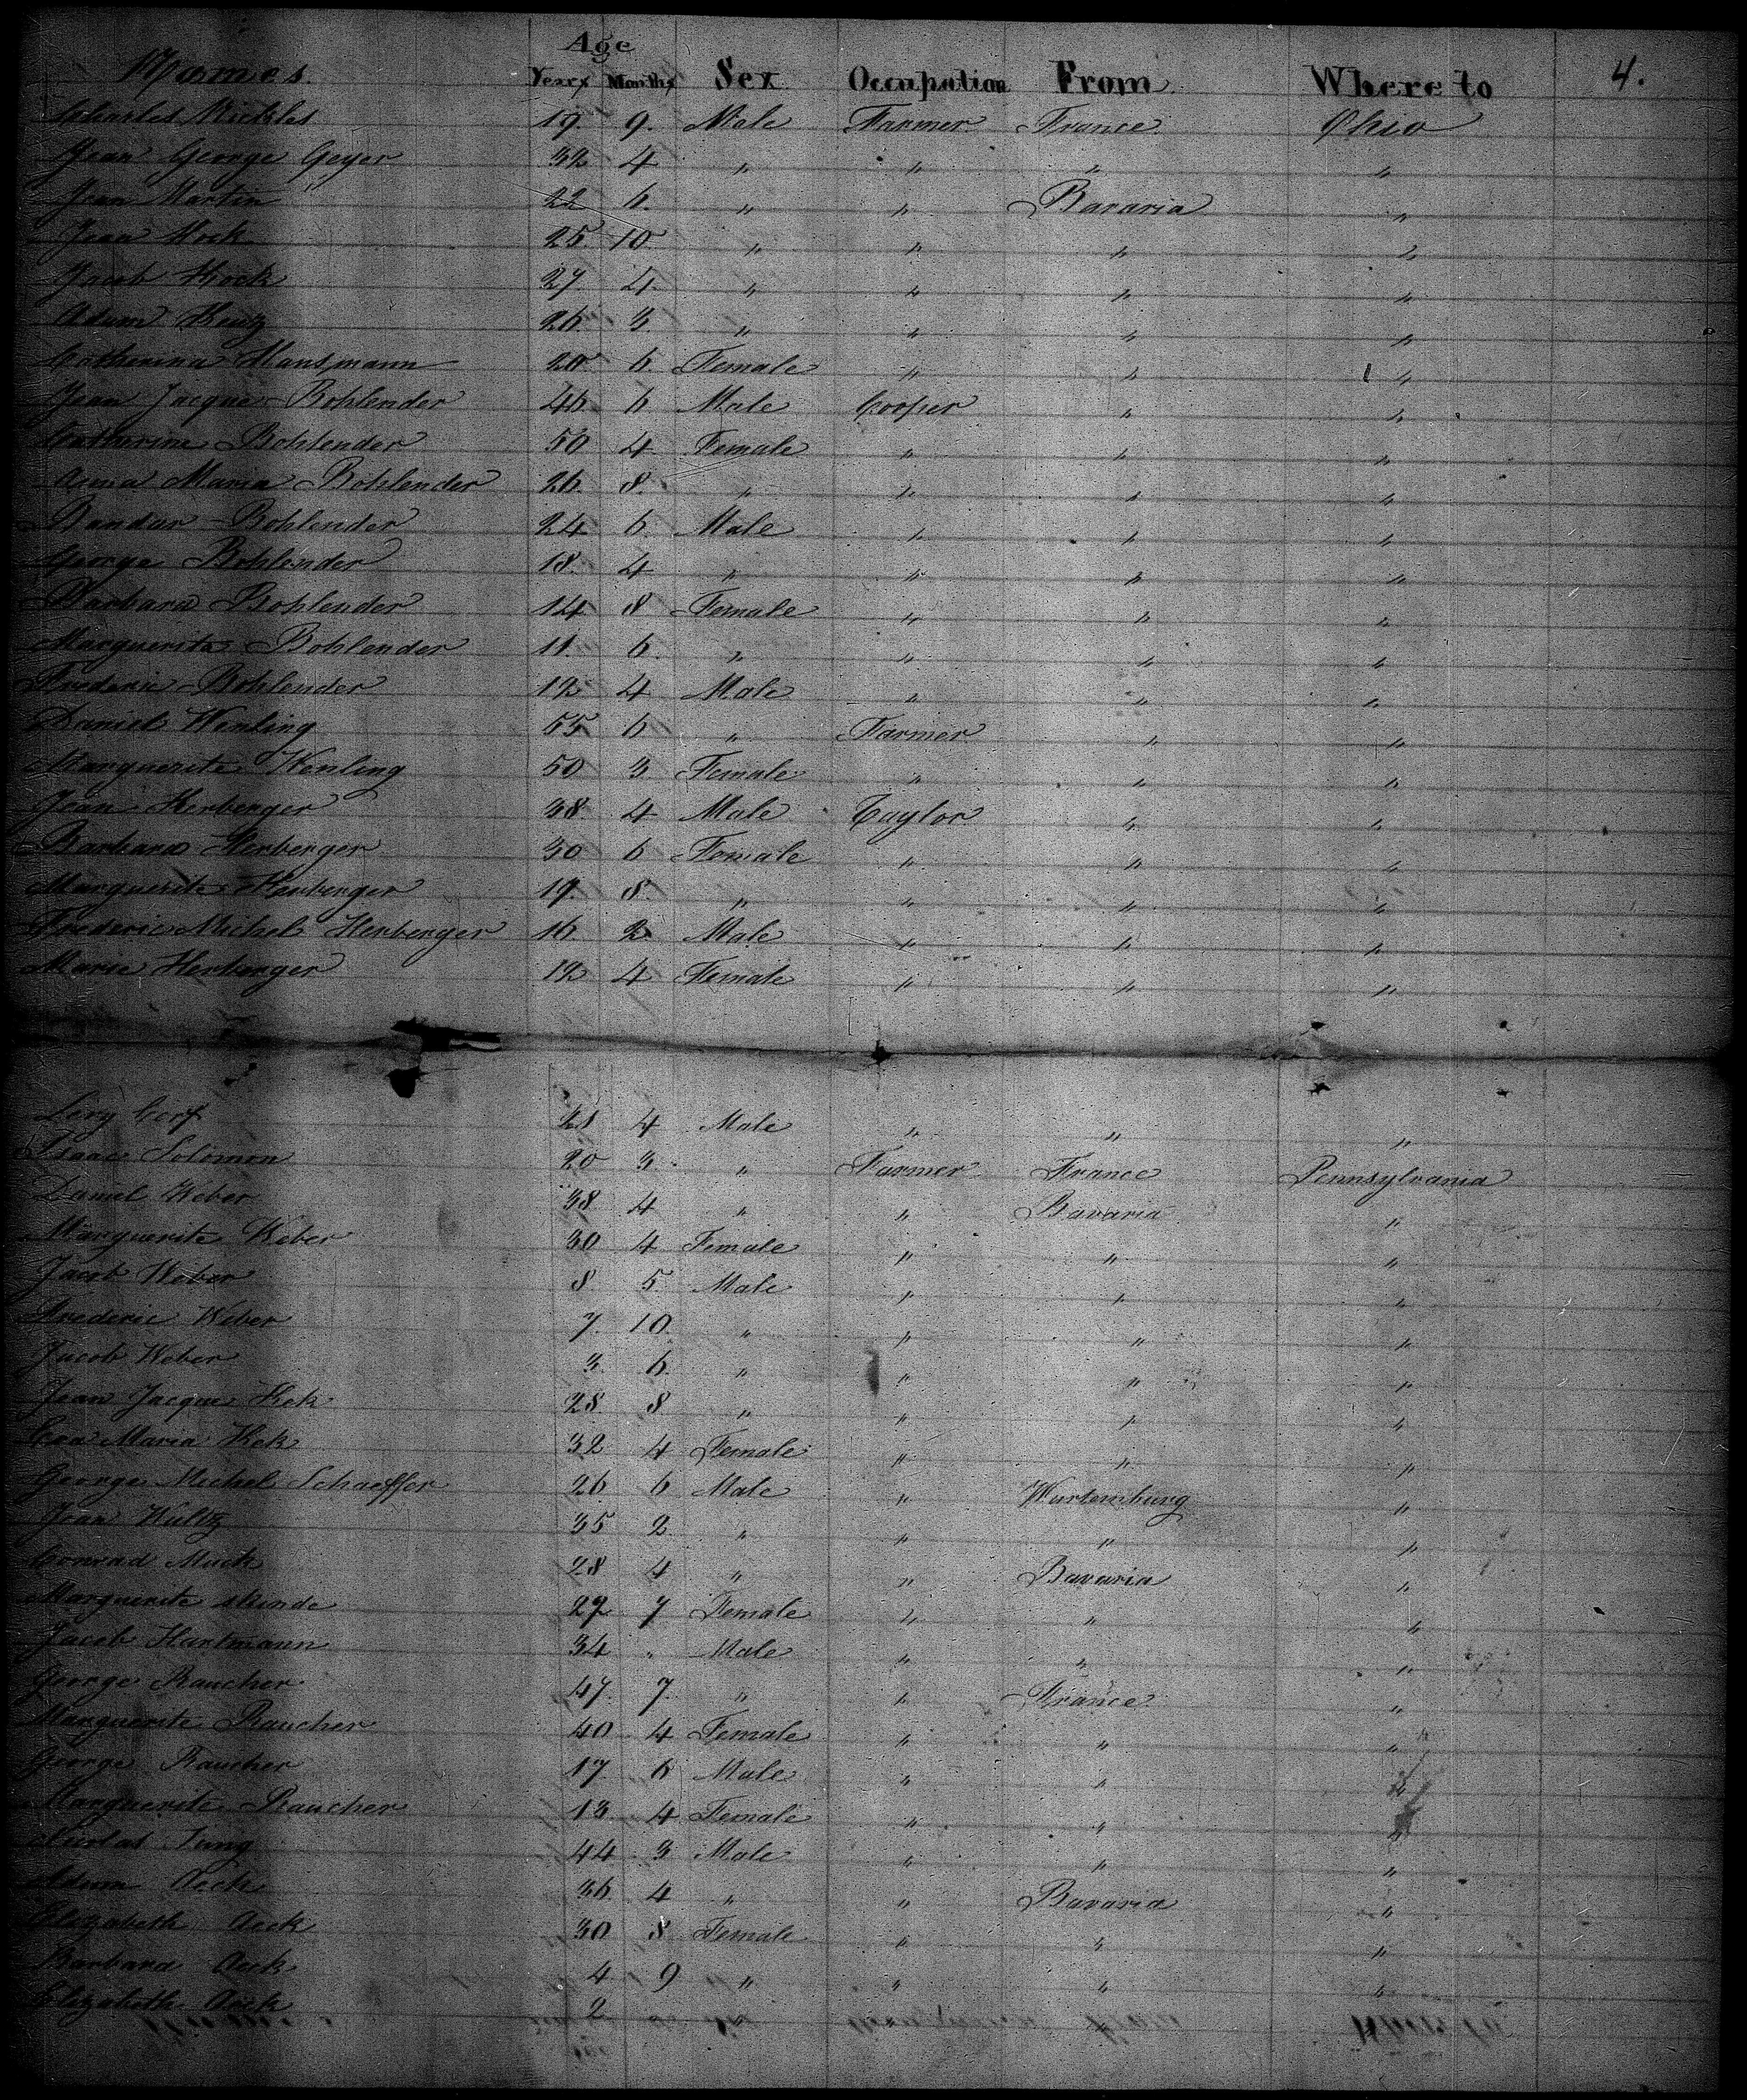 Names Age Years Months Sex Occupation From Where to 4.
Charles Nickles 19. 9. Male Farmer France Ohio
Jean George Geyer 32 4 " " " "
Jean Martin 22 6. " " Bavaria "
Jean Hock 25 10 " " " "
Jacob Hock 27 4 " " " "
Adam 26 3 " " " "
Catherina Mansmann 20 6 Female " " "
Jean Jacques Bohlender 46 6 Male Cooper " "
Catherine Bohlender 50 4 Female " " "
Anna Maria Bohlender 26. 8. " " " "
Bohlender 24 6 Male " " "
George Bohlender 18. 4 " " " "
Barbara Bohlender 14 8 Female " " "
Marguerite Bohlender 11. 6. " " " "
Frederic Bohlender 12 4 Male " " "
Daniel Wenling 55 6 " Farmer " "
Marguerite Wenling 50 3 Female " " "
Jean Herberger 38 4 Male Taylor " "
Barbara Herberger 30 6 Female " " "
Marguerite Herberger 19. 8. " " " "
Frederic Michel Herberger 16. 2 Male " " "
Marie Herberger 12 4 Female " " "
Levy Cerf 21 4 Male " " "
Isaac Solomon 20 3 " Farmer France Pennsylvania
Daniel Weber 38 4 " " Bavaria "
Marguerite Weber 30 4 Female " " "
Jacob Weber 8. 5. Male " " "
Frederic Weber 7. 10. " " " "
Jacob Weber 3. 6. " " " "
Jean Jacque Hek 28 8 " " " "
Eva Maria Hek 32 4 Female " " "
George Michel Schaeffer 26 6 Male " Wurtemburg "
Jean Waltz 35 2 " " " "
Conrad Muck 28 4 " " Bavaria "
Marguerite 27 7 Female " " "
Jacob Hartmann 34 " Male " " "
George Raucher 47. 7. " " France "
Marguerite Raucher 40 4 Female " " "
George Raucher 17. 6 Male " " "
Marguerite Raucher 13 4 Female " " "
Nicolas Jung 44 3 Male " " "
Adam Aeck 36 4 " " Bavaria "
Elizabeth Aeck 30 8 Female " " "
Barbara Aeck 4 9 " " " "
Elizabeth Aeck 2 "